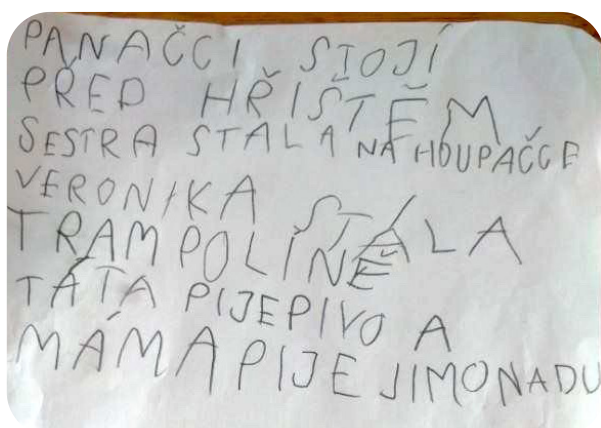 PANAČCI STOJÍ
PŘED HŘIŠTĚM
SESTRA STALA NA HOUPAČCE
VERONIKA STÁLA
TRAMPOLÍNĚ
TÁTA PIJEPIVO A
MÁMA PIJE JIMONADU